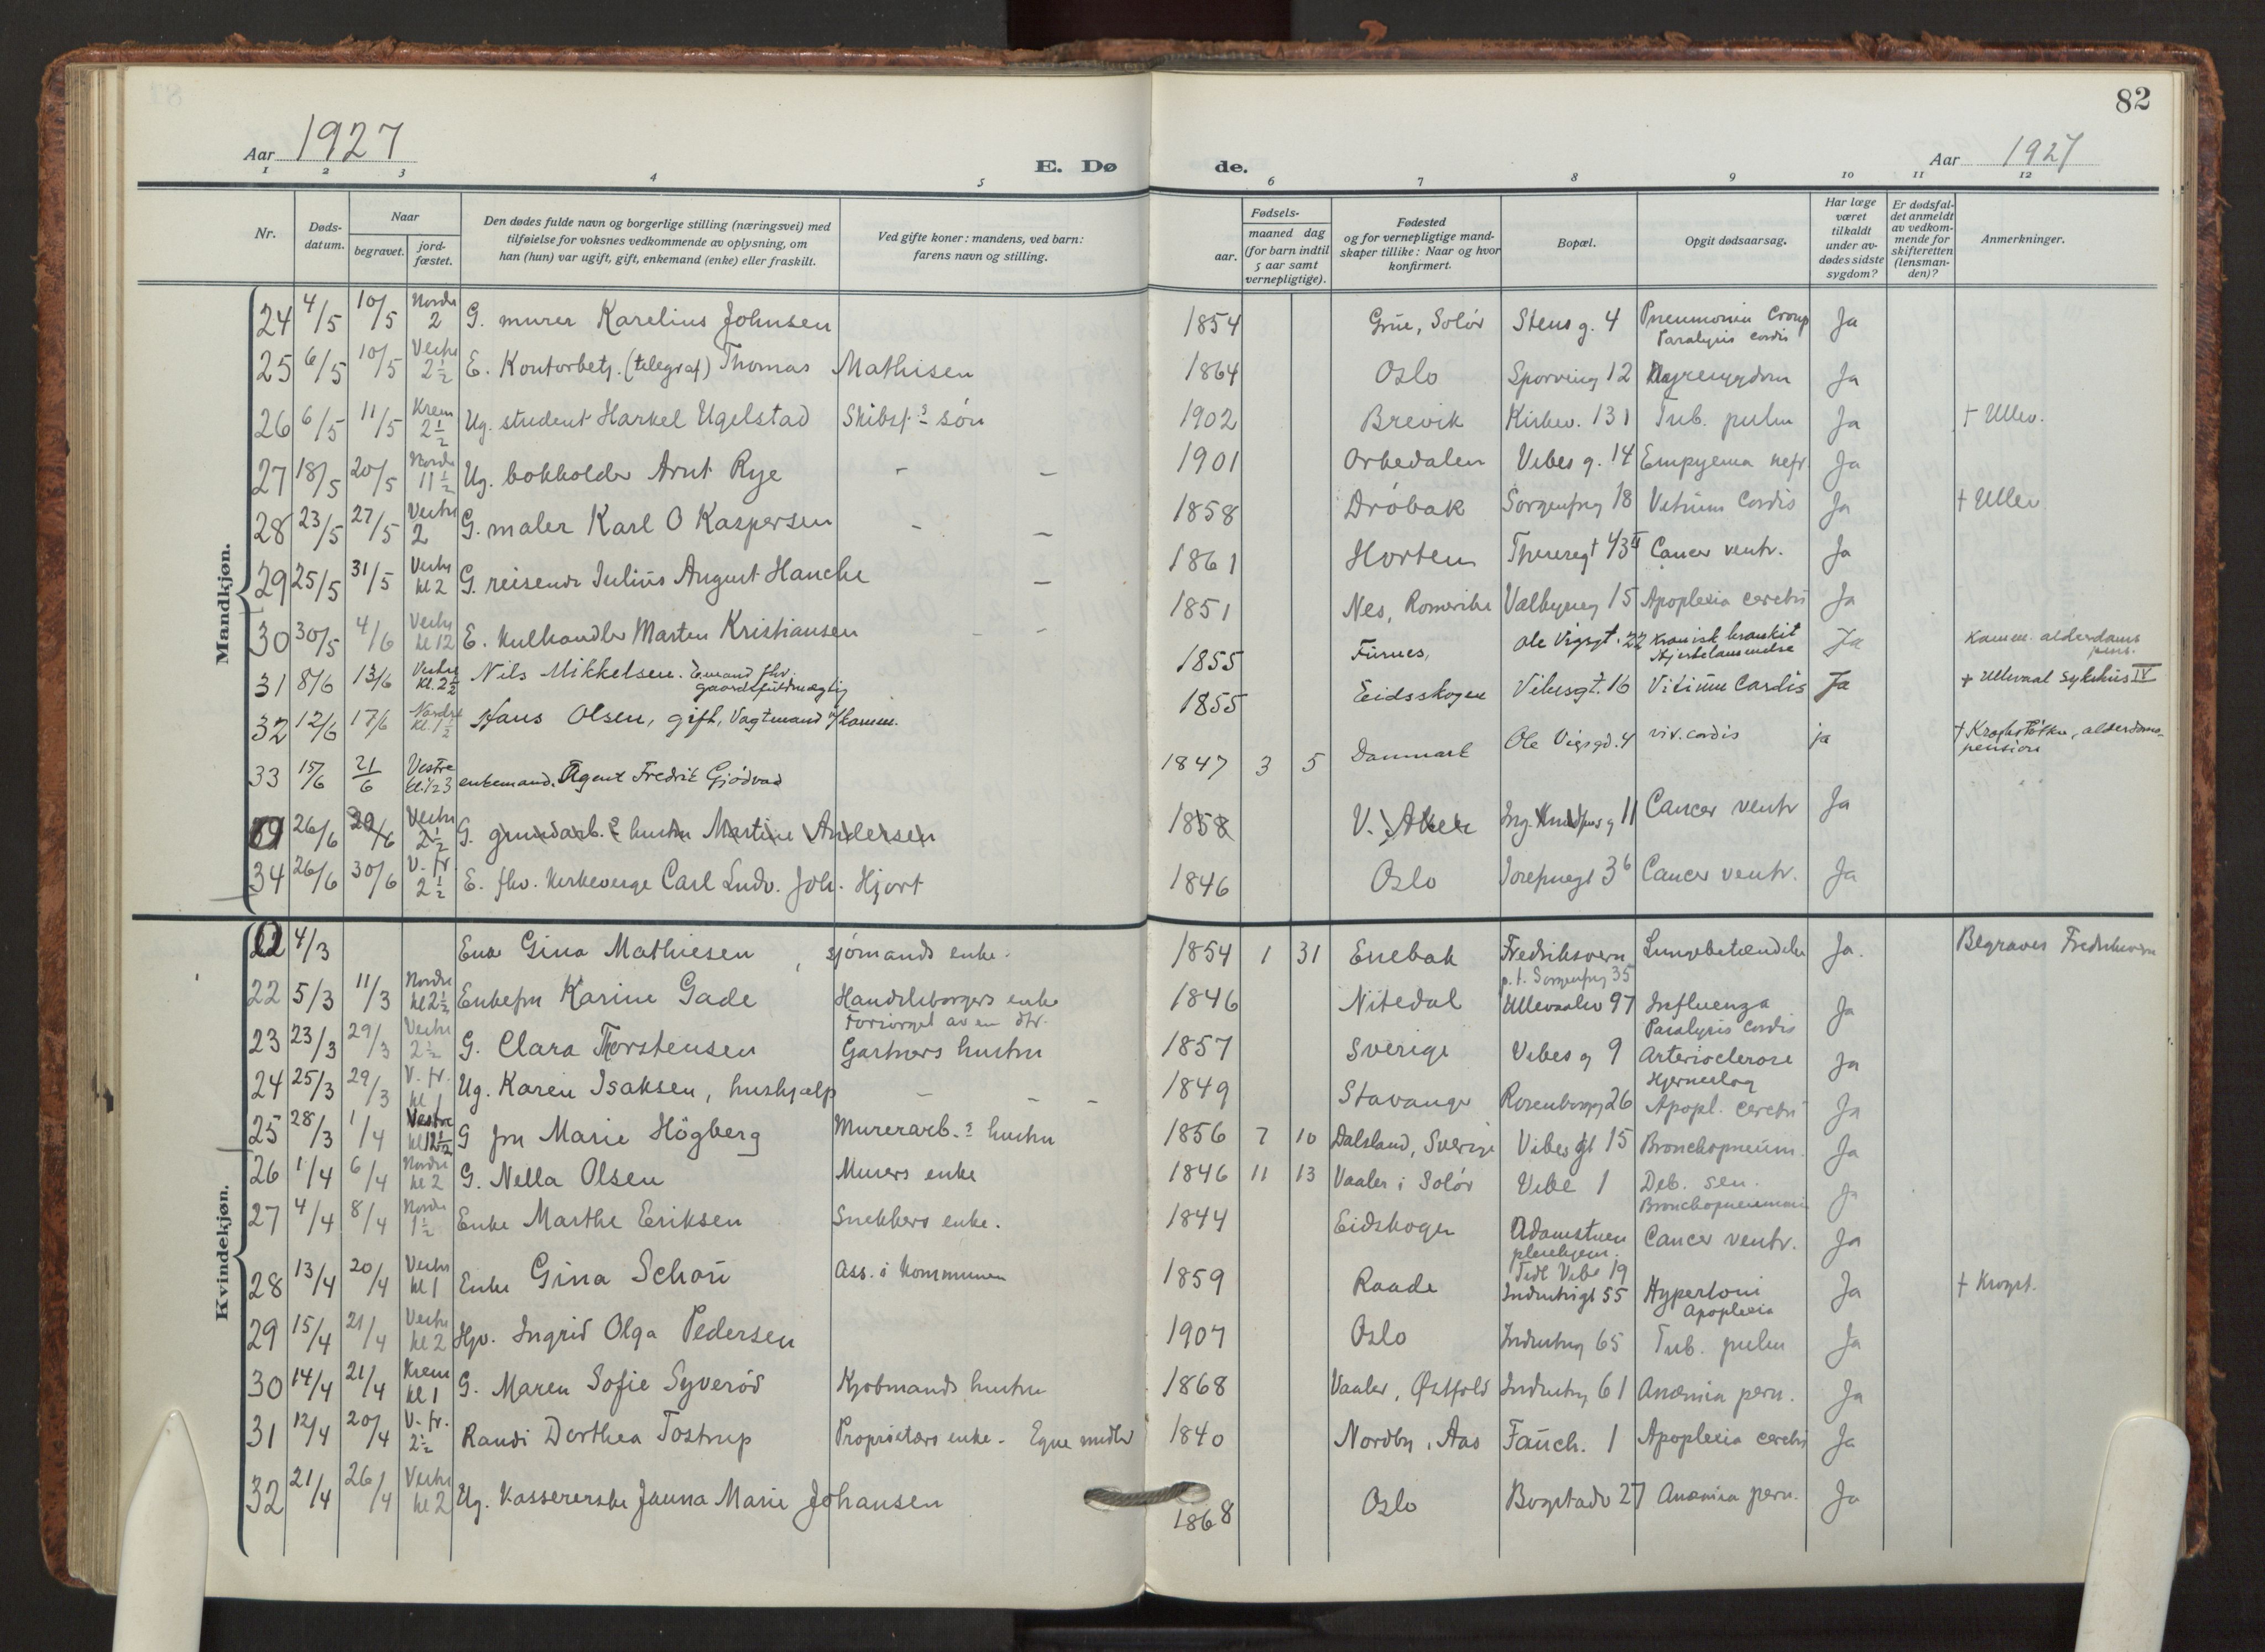 82
Aar 1927
E. Dø de.
Aar 1927
1 2 3 4 5 6 7 8 9 10 11 12
Nr. Døds-datum. Naar begravet. jord-fæstet. Den dødes fulde navn og borgerlige stilling (næringsvei) med tilføielse for voksnes vedkommende av oplysning, om han (hun) var ugift, gift, enkemand (enke) eller fraskilt. Ved gifte koner: mandens, ved barn: farens navn og stilling. Fødsels- aar. maaned dag (for barn indtil 5 aar samt vernepligtige). Fødested og for vernepligtige mand-skaper tillike: Naar og hvor konfirmert. Bopæl. Opgit dødsaarsag. Har læge været tilkaldt under av-dødes sidste sygdom? Er dødsfal-det anmeldt av vedkom-mende for skifteretten (lensman-den)? Anmerkninger.
Mandkjøn.
24 4/5 10/5 Nordre 2 G. murer Karelius Johnsen 1854 Grue, Solör Stens g. 4 Pneumonia Croup Paralysis cordis Ja
25 6/5 10/5 Vestre 2½ E. Kontorbetj. (telegraf) Thomas Mathisen 1864 Oslo Sporveisg 12 Nyresygdom Ja
26 6/5 11/5 Krem 2½ Ug. student Harkel Ugelstad Skibsf s sön 1902 Brevik Kirkev. 131 Tub. pulm Ja + Ullev.
27 18/5 20/5 Nordre 11½ Ug. bokholder Arnt Rye - - 1901 Orkedalen Vibes g. 14 Empyema nefr. Ja
28 23/5 27/5 Vestre 2 G. maler Karl O Kaspersen - - 1858 Dröbak Sorgenfrig 18 Vitium Cordis Ja + Ullev
29 25/5 31/5 Vestre kl 2 G. reisende Julius August Hanche - 1861 Horten Theresegt 43 II Cancer ventr. Ja
30 30/5 4/6 Vestre kl 12 E. kulhandler Marten Kristiansen - - 1851 Nes, Romerike Valbyveg 15 Apoplexia cerebri Ja
31 8/6 13/6 Vestre Kl. 2½ Nils Mikkelsen. Emand fhv. gaardsfuldmægtig 1855 Furnes, Ole Vigsgt. 22 Kronisk bronkit Hjertelammelse Ja Komm. alderdoms pens.
32 12/6 17/6 Nordre Kl. 1½ Hans Olsen, gift, Vagtmand v/ komm. 1855 Eidsskogen Vibesgt. 16 Vitium Cordis Ja + Ullevaal sykehus IV
33 15/6 21/6 Vestre kl. ½ 3 enkemand. Agent Fredrik Gjödvad 1847 3 5 Danmark Ole Vigsgd. 4 vit. cordis ja + Krogstötten, alderdoms-pension
26/6 29/6 Vestre 2½ G. grundarb. s hustru Martine Andersen 1858 V. Aker 11 Cancer ventr Ja
34 26/6 30/6 V. fr. 2½ E. fhv. kirkeverge Carl Ludv. Joh. Hjort 1846 Oslo Josefinegt 3 b Cancer ventr. Ja
Kvindekjøn.
0 4/3 Enke Gina Mathiesen, sjömands enke. 1854 1 31 Enebak Fredriksvern p.t. Sorgenfrig 35 Lungebetændelse Ja. Begraves Fredriksvern
22 5/3 11/3 Nordre kl 2½ Enkefru Karine Gade Handelsborgers enke Forsörget av en dtr. 1846 Nitedal Ullevaalsv 97 Influenza Paralysis Cordis Ja
23 23/3 29/3 Vestre 2½ G. Clara Thorstensen Gartners hustru 1857 Sverige Vibes g 9 Arteriosclerose Hjerneslag Ja
24 25/3 29/3 V. fr. kl 1 Ug. Karen Isaksen, hushjælp - - - 1849 Stavanger Rosenborgg 26 Apopl. cerebri Ja
25 28/3 1/4 Vestre kl 12½ G fru Marie Högberg Murerarb. s hustru 1856 7 10 Dalsland, Sverige Vibes gt 15 Bronchopneum. Ja
26 1/4 6/4 Nordre kl 2 G. Nella Olsen Murers enke 1846 11 13 Vaaler i Solör Vibe 1 Deb. sen. Bronchopneumoni Ja
27 4/4 8/4 Nordre 1½ Enke Marthe Eriksen Snekkers enke. 1844 Eidskogen Adamstuen pleiehjem. Tidl Vibe 19 Cancer ventr. Ja
28 13/4 20/4 Vestre kl 1 Enke Gina Schou Ass. i Kommunen 1859 Raade Industrigt 55 Hypertoni Apoplexia Ja + Krogst.
29 15/4 21/4 Vestre kl 2 Hjv. Ingrid Olga Pedersen 1907 Oslo Industrig 65 Tub. pulm Ja
30 14/4 21/4 Krem kl 1 G. Maren Sofie Syveröd Kjöbmands hustru 1868 Vaaler, Østfold Industrig 61 Anæmia pern. Ja
31 12/4 20/4 V. fr. 2½ Randi Dorthea Tostrup Proprietærs enke - Egne midler 1840 Nordby, Aas Fauch. 1 Apoplexia cerebri Ja
32 21/4 26/4 Vestre kl 2 Ug. Kassererske Janna Marie Johansen 1868 Oslo Bogstadv 27 Anæmia pern. Ja